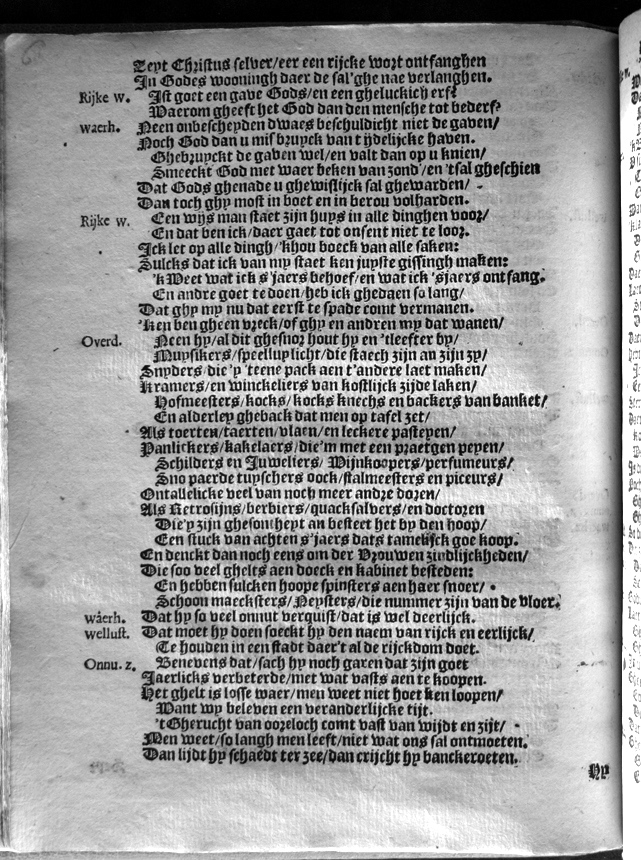 Seyt Christus selver/eer een rijcke wort ontfanghen
In Godes wooningh daer de sal'ghe nae verlanghen.
Rijke w. Ist goet een gave Gods/en een gheluckich erf?
Waerom gheeft het God dan den mensche tot bederf?
waerh. Neen onbescheyden dwaes beschuldicht niet de gaven/
Noch God dan u misbruyck van tijdelijcke haven.
Ghebruyckt de gaven wel/en valt dan op u knien/
Smeeckt God met waer beken van zond'/en 'tsal gheschien
Dat Gods ghenade u ghewislijck sal ghewarden/
Dan toch ghy most in boet en in berou volharden.
Rijke w. Een wijs man staet zijn huys in alle dinghen voor/
En dat ben ick/daer gaet tot onsent niet te loor.
Ick let op alle dingh/'khou boeck van alle saken:
Sulcks dat ick van my staet ken juyste gissingh maken:
'k Weet wat ick s'jaers behoef/en wat ick 'sjaers ontfang.
En andre goet te doen/heb ick ghedaen so lang/
Dat ghy my nu dat eerst te spade comt vermanen.
'Ken ben gheen vreck/of ghy en andren my dat wanen/
Overd. Neen hy/al dit ghesnor hout hy en 'tleefter by/
Muysikers/speelluylicht/die staech zijn an zijn zy/
Snyders die'y 'teene pack aen t'andere laet maken/
Kramers/en winckeliers van kostlijck zijde laken/
Hofmeesters/kocks/kocks knechs en backers van banket/
En alderley gheback dat men op tafel zet/
Als toerten/taerten/vlaen/en leckere pasteyen/
Panlickers/kakelaers/die'm met een praetgen peyen/
Schilders en Juweliers/Wijnkoopers/perfumeurs/
Sno paerde tuyschers oock/stalmeesters en piceurs/
Ontallelicke veel van noch meer andre doren/
Als Retrosijns/berbiers/quacksalvers/en doctoren
Die'y zijn ghesontheyt an besteet het by den hoop/
Een stuck van achten s'jaers dats tamelijck goe koop.
En denckt dan noch eens om der Vrouwen zindlijckheden/
Die soo veel ghelts aen doeck en kabinet besteden:
En hebben sulcken hoope spinsters aen haer snoer/
Schoon maecksters/Neysters/die nummer zijn van de vloer.
waerh. Dat hy so veel onnut verquist/dat is wel deerlijck.
wellust. Dat moet hy doen soeckt hy den naem van rijck en eerlijck/
Te houden in een stadt daer't al de rijckdom doet.
Onnu. z. Benevens dat/sach hy noch garen dat zijn goet
Jaerlicks verbeterde/met wat vasts aen te koopen.
Het ghelt is losse waer/men weet niet hoet ken loopen/
Want wy beleven een veranderlijcke tijt.
't Gherucht van ooreloch comt vast van wijdt en zijt/
Men weet/so langh men leeft/niet wat ons sal ontmoeten.
Dan lijdt hy schaedt ter zee/dan crijcht hy banckeroeten.
Hy